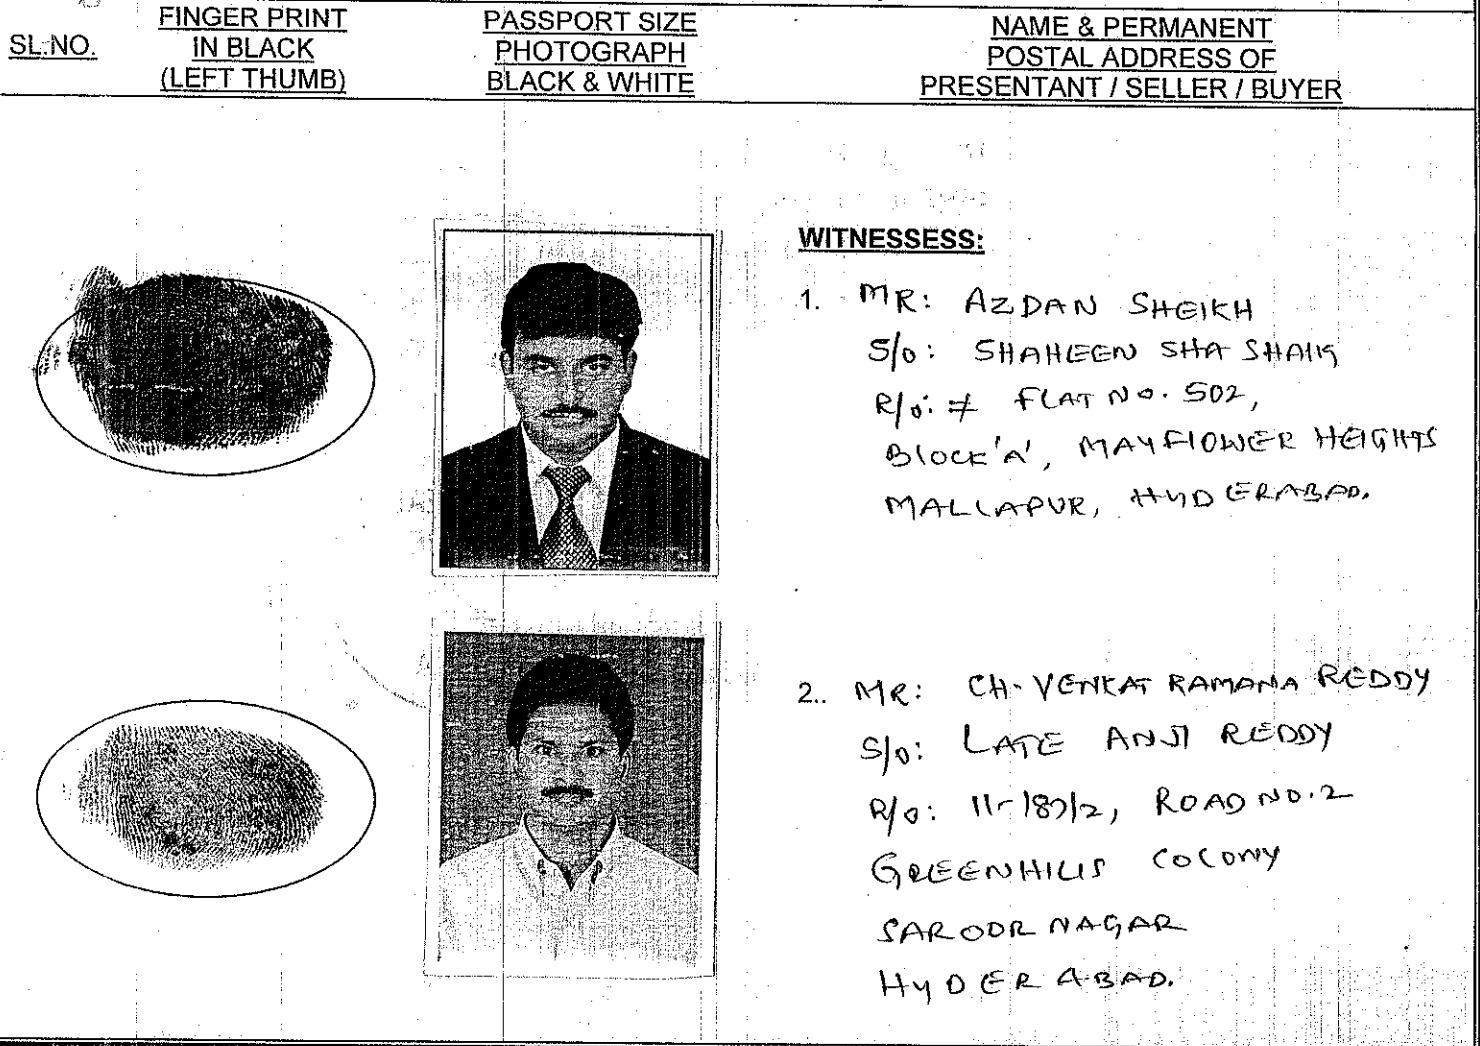 SL.NO.
FINGER PRINT
IN BLACK
(LEFT THUMB)
PASSPORT SIZE
PHOTOGRAPH
BLACK & WHITE
NAME & PERMANENT
POSTAL ADDRESS OF
PRESENTANT / SELLER / BUYER
WITNESSESS:
1. MR: AZDAN SHEIKH
S/o: SHAHEEN SHA SHAIK
R/o: # FLAT NO. 502,
BLOCK 'A', MAYFLOWER HEIGHTS
MALLAPUR, HYDERABAD.
2.. MR: CH. VENKAT RAMANA REDDY
S/o: LATE ANJI REDDY
R/o: 11-187/2, ROAD NO.2
GREENHILLS COLONY
SAROOR NAGAR
HYDERABAD.